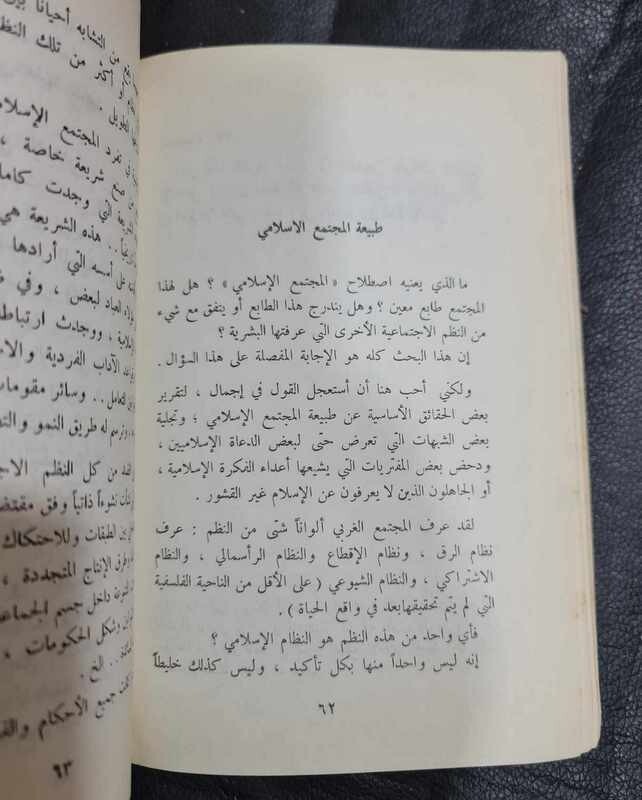 طبيعة المجتمع الاسلامي
ما الذي يعنيه اصطلاح « المجتمع الإسلامي » ؟ هل لهذا
المجتمع طابع معين ؟ وهل يندرج هذا الطابع أو يتفق مع شيء
من النظم الاجتماعية الأخرى التي عرفتها البشرية ؟
إن هذا البحث كله هو الإجابة المفصلة على هذا السؤال .
ولكني أحب هنا أن أستعجل القول في إجمال ، لتقرير
بعض الحقائق الأساسية عن طبيعة المجتمع الإسلامي ؛ وتجلية
بعض الشبهات التي تعرض حتى لبعض الدعاة الإسلاميين ،
ودحض بعض المفتريات التي يشيعها أعداء الفكرة الإسلامية ،
أو الجاهلون الذين لا يعرفون عن الإسلام غير القشور .
لقد عرف المجتمع الغربي ألواناً شتى من النظم : عرف
نظام الرق ، ونظام الإقطاع والنظام الرأسمالي ، والنظام
الاشتراكي ، والنظام الشيوعي ( على الأقل من الناحية الفلسفية
التي لم يتم تحقيقهابعد في واقع الحياة ) .
فأي واحد من هذه النظم هو النظام الإسلامي ؟
إنه ليس واحداً منها بكل تأكيد ، وليس كذلك خليطاً
٦٢
من التشابه أحياناً
أو أكثر من تلك النظم
الطويل .
في تفرد المجتمع
من صنع شريعة خاصة ،
التي وجدت
.. هذه الشريعة هي
على أسسه التي أرادها
العباد لبعض ، وفي
، ووجدت
الآداب الفردية
التعامل .. وسائر مقومات
له طريق النمو
من كل النظم
نشوءاً ذاتياً وفق
الطبقات وللاحتكاك
الإنتاج المتجددة ،
داخل جسم
وشكل الحكومات ،
.. الخ .
جميع الأحكام
٦٣